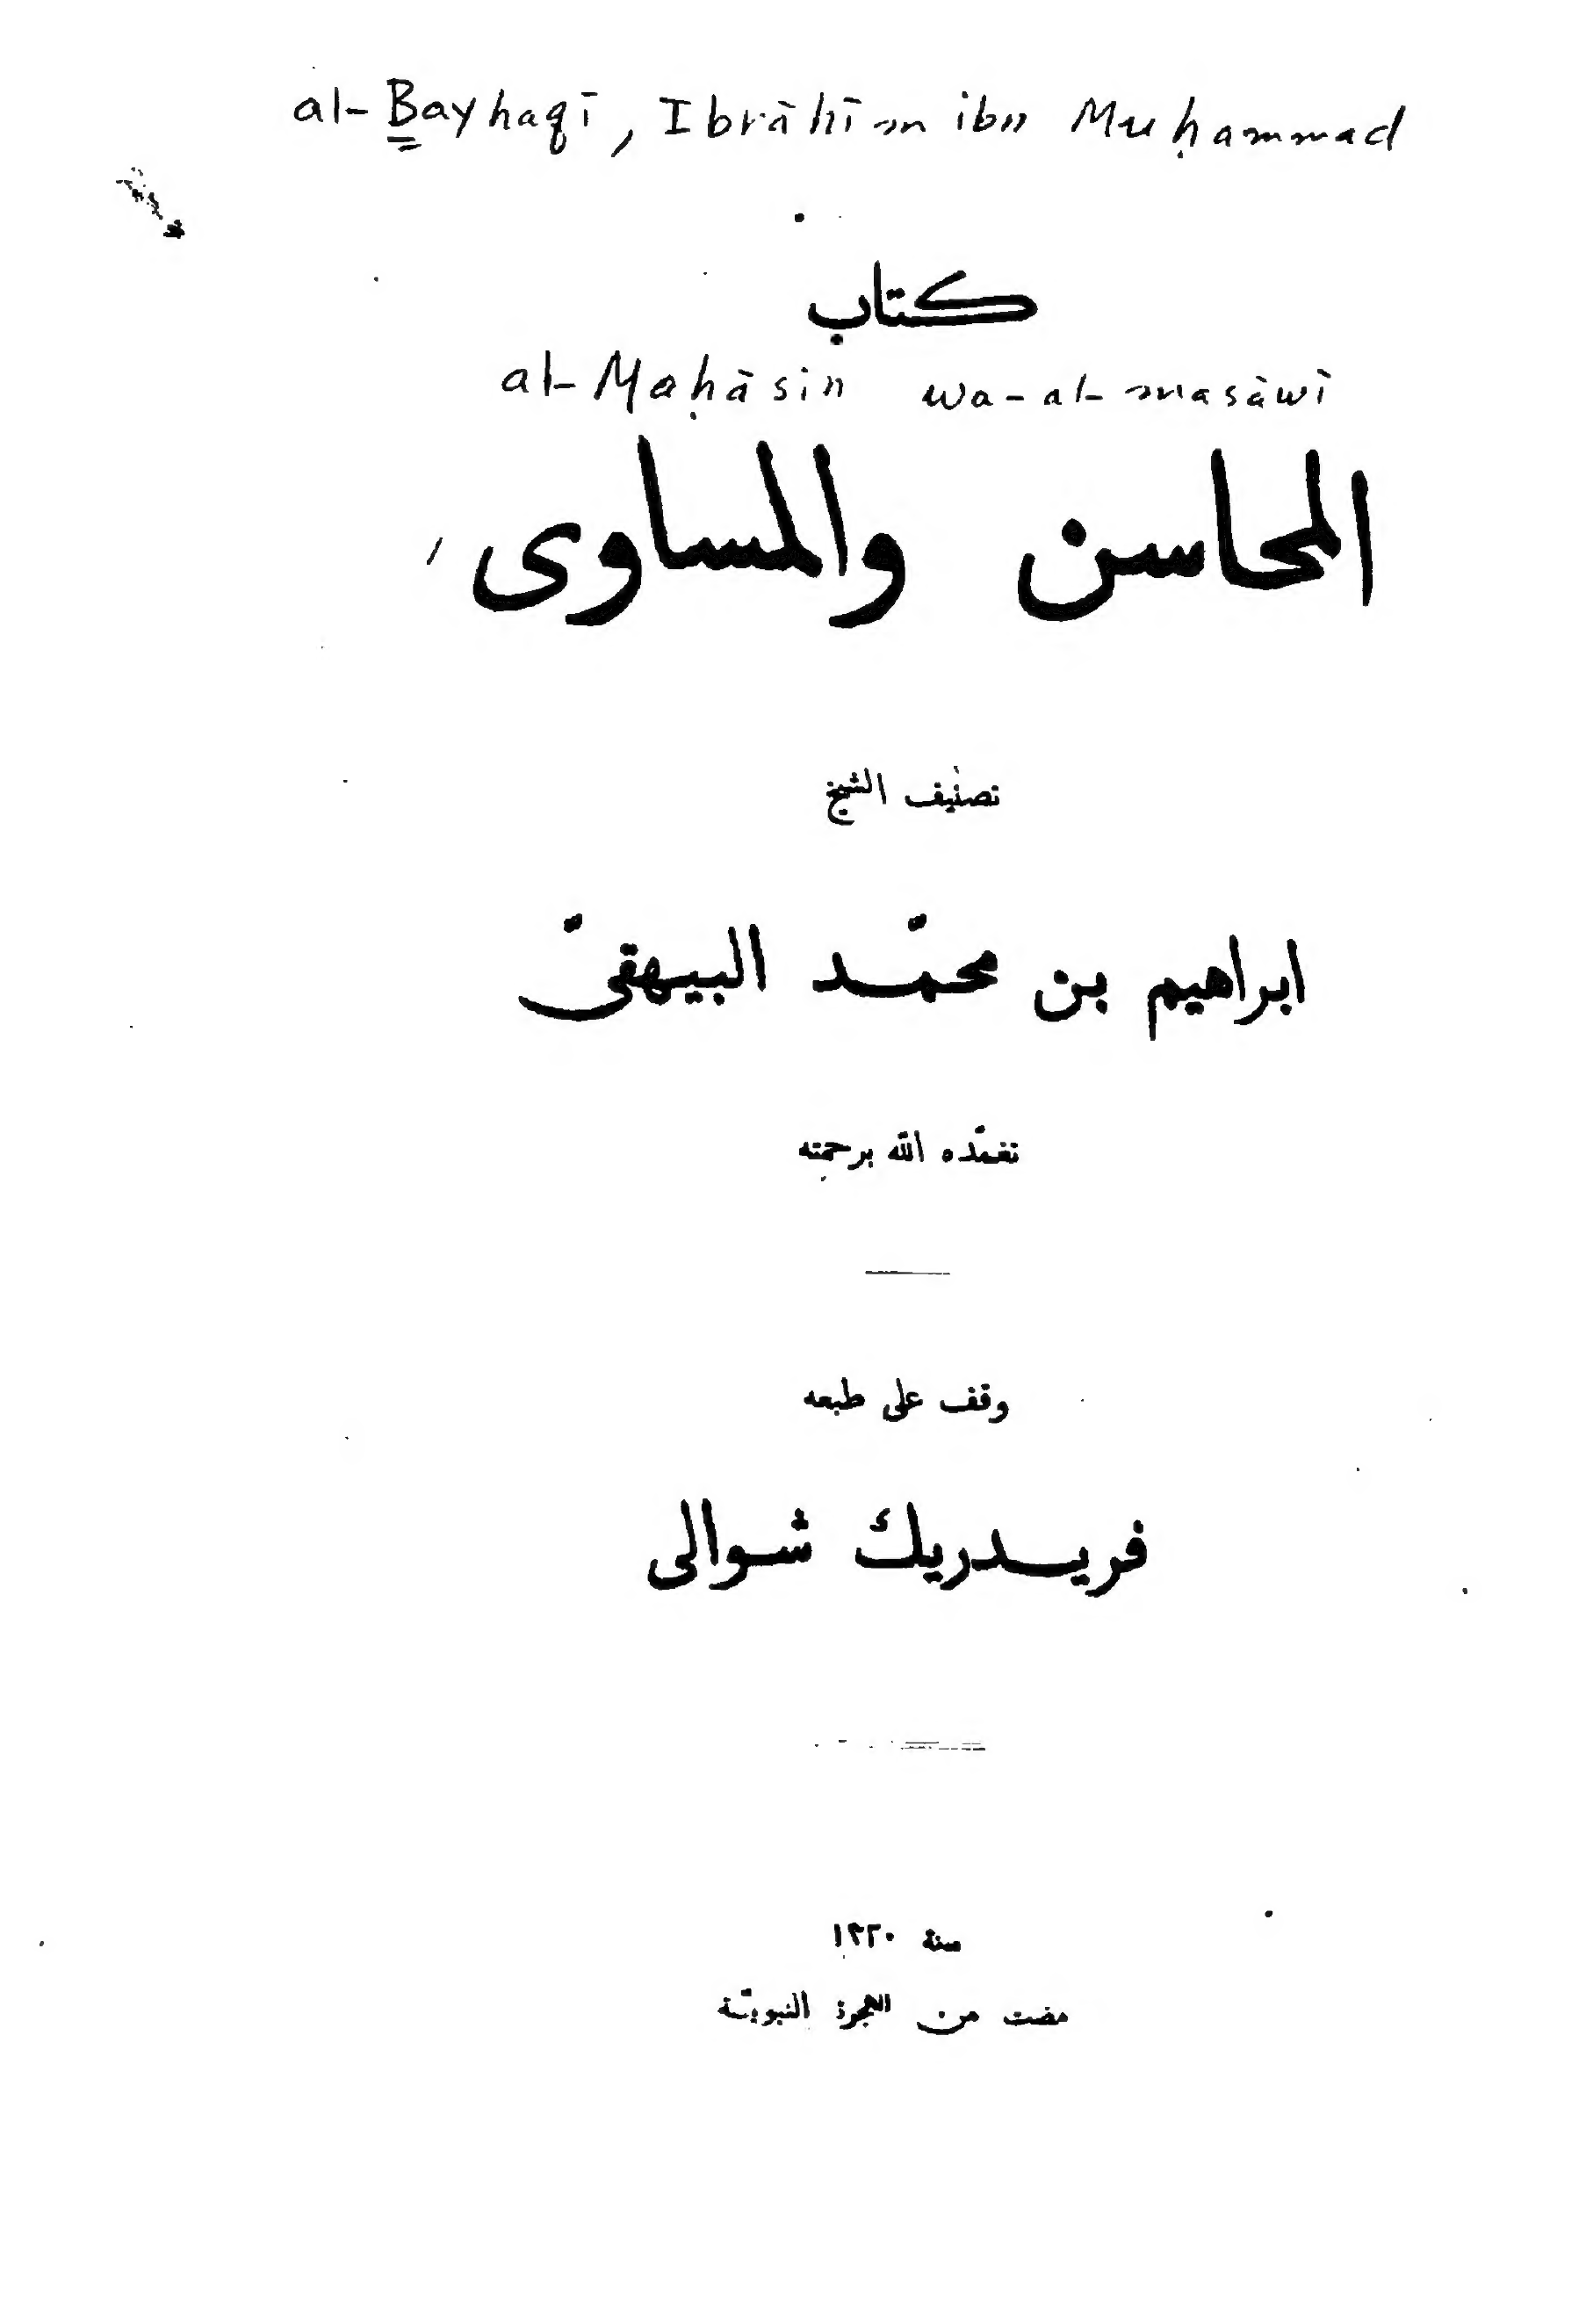 al-Bayhaqī, Ibrāhīm ibn Muḥammad
كتاب
al-Maḥāsin wa-al-masāwī
المحاسن والمساوى
تصنيف الشيخ
ابراهيم بن محمّد البيهقىّ
تغمّده الله برحمته
وقف على طبعه
فريدريك شوالى
سنة ١٣٢٠
مضت من الهجرة النبويّة